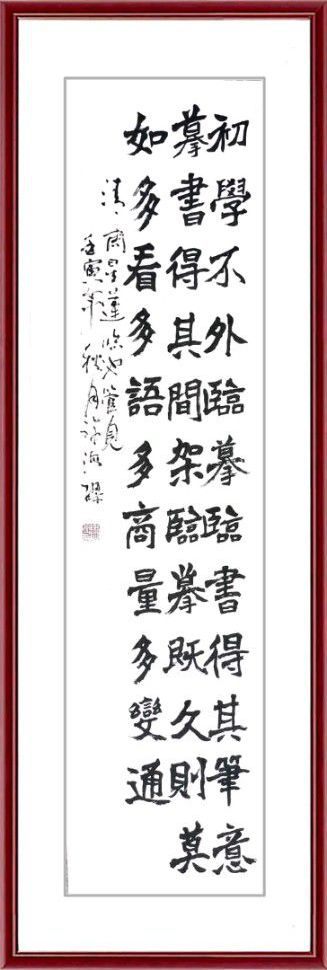 初學不外臨摹臨書得其筆意
摹書得其間架臨摹既久則莫
如多看多語多商量多變通
清、周星蓮臨池管見
壬寅年秋月